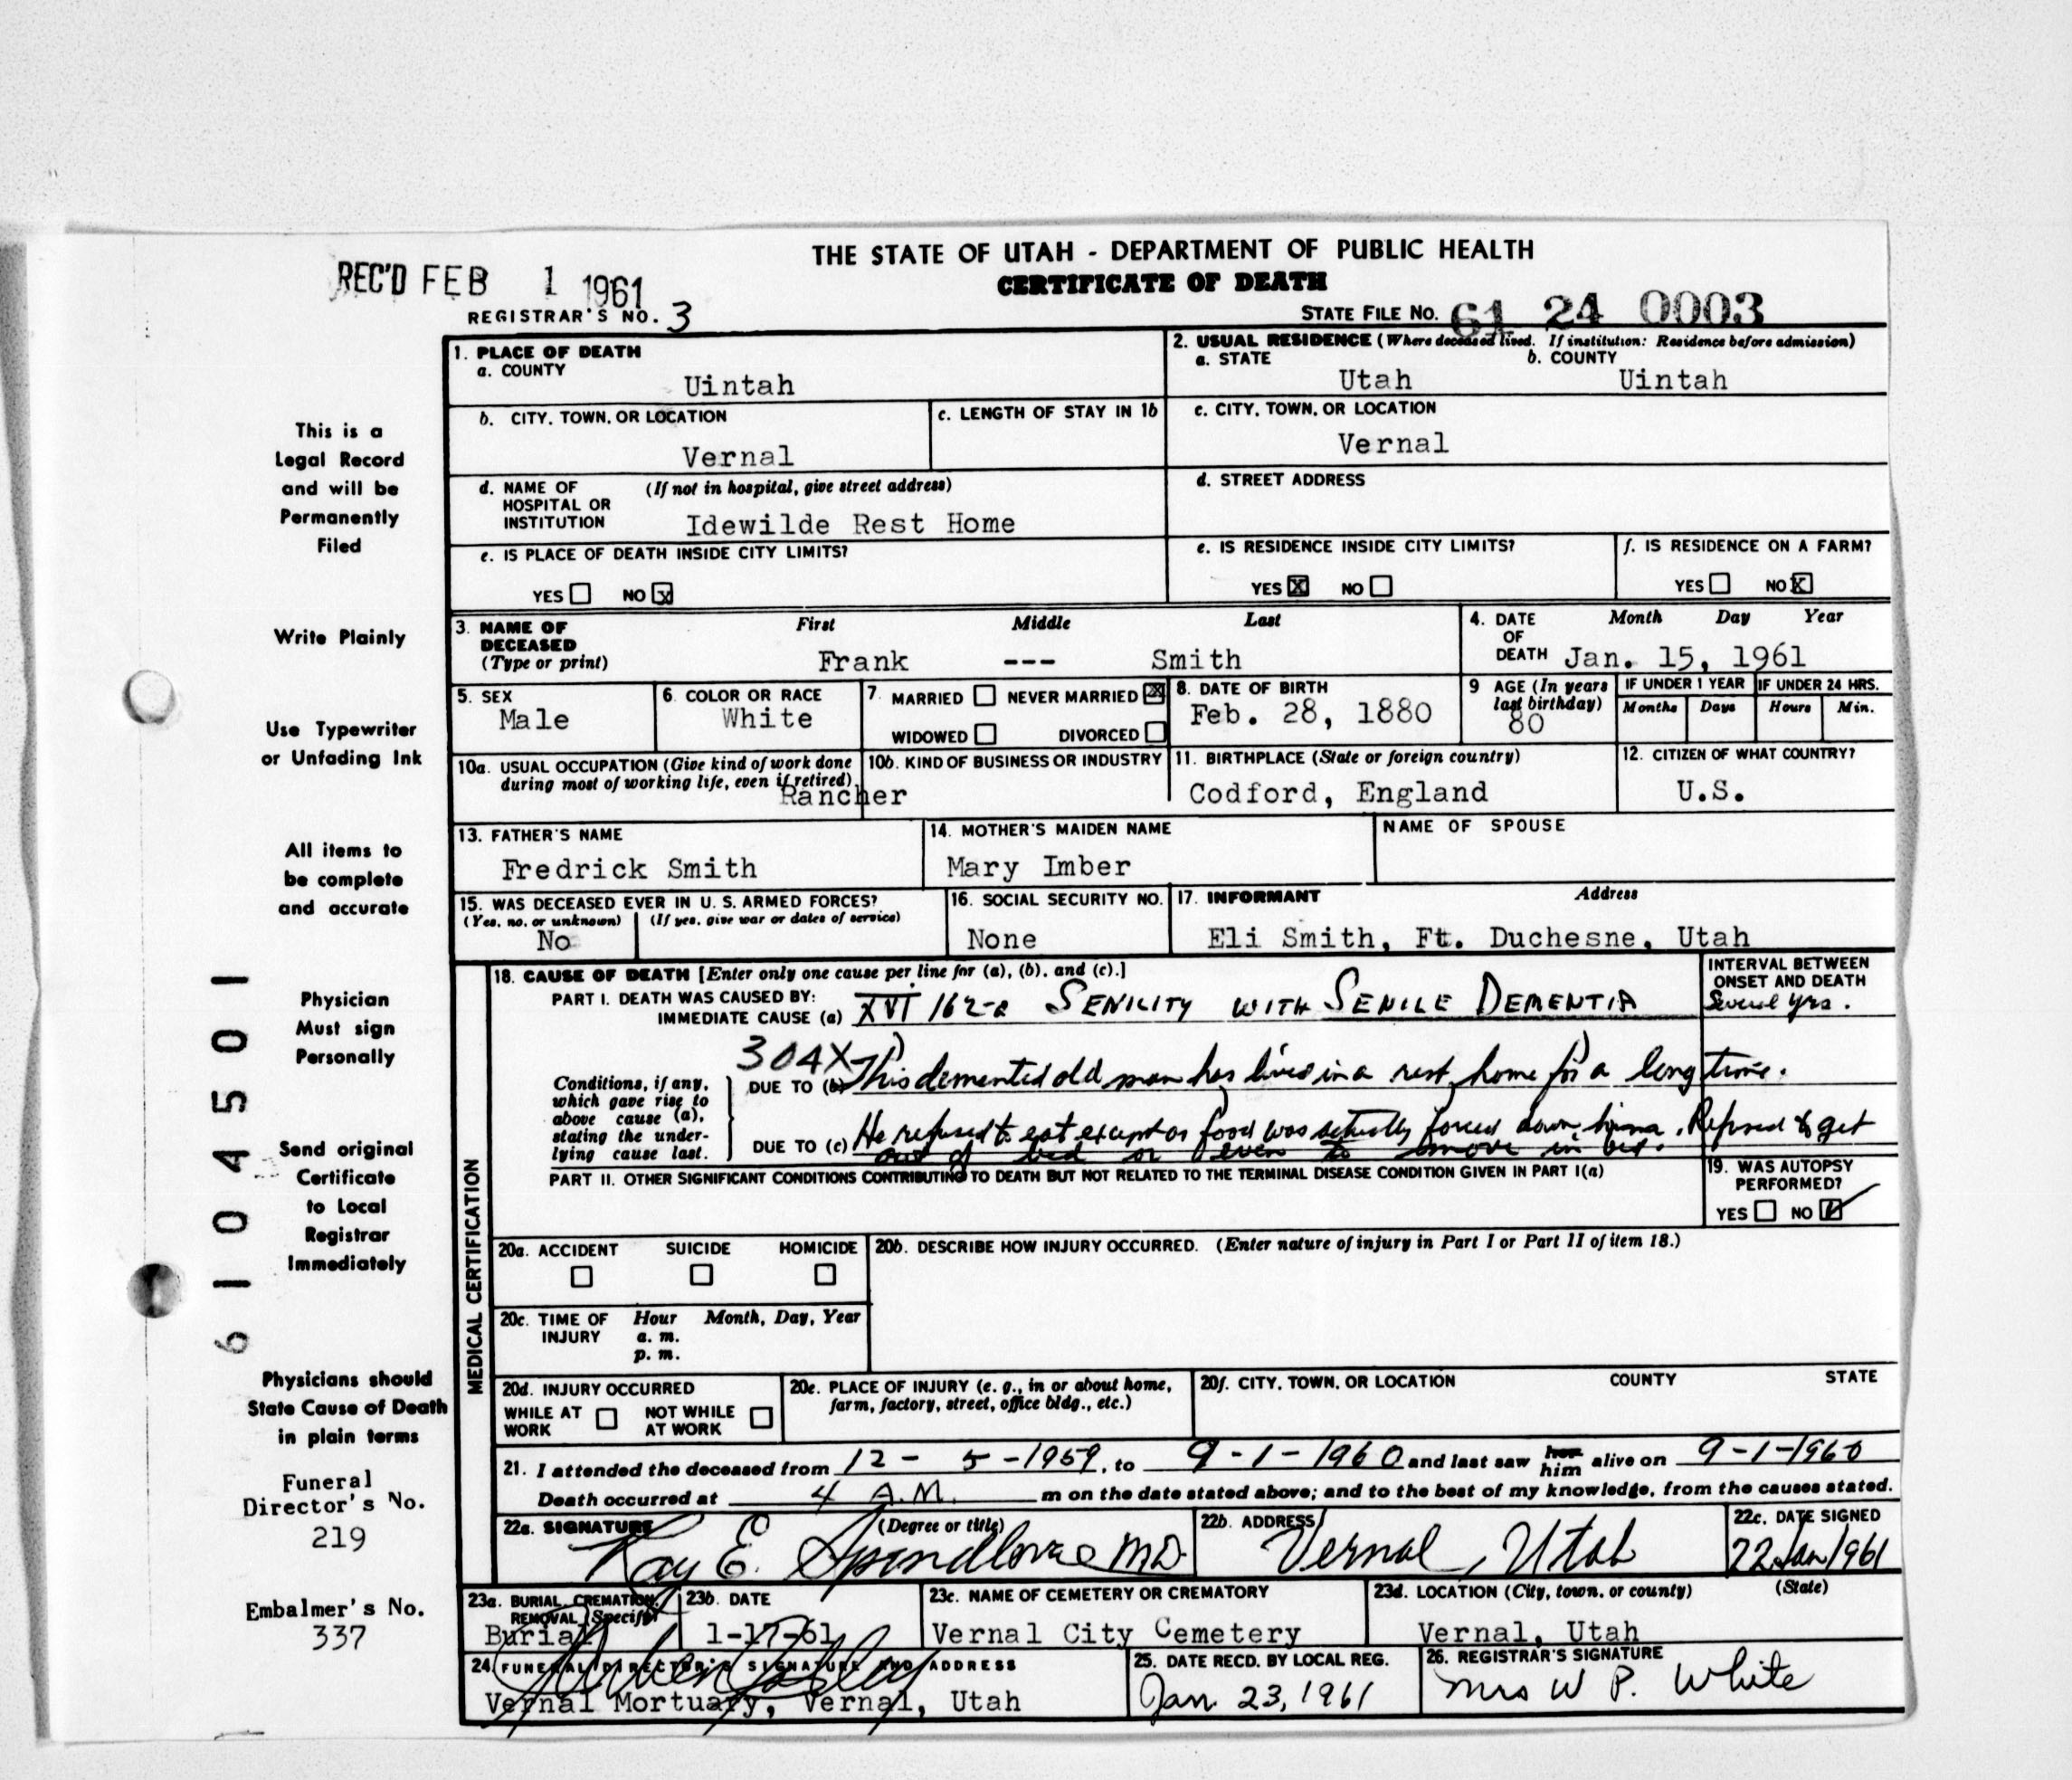 THE STATE OF UTAH - DEPARTMENT OF PUBLIC HEALTH
CERTIFICATE OF DEATH
REC'D FEB 1 1961
REGISTRAR'S NO. 3
STATE FILE NO. 61 24 0003
This is a
Legal Record
and will be
Permanently
Filed
Write Plainly
Use Typewriter
or Unfading Ink
All items to
be complete
and accurate
Physician
Must sign
Personally
Send original
Certificate
to Local
Registrar
Immediately
Physicians should
State Cause of Death
in plain terms
Funeral
Director's No.
219
Embalmer's No.
337
6 1 0 4 5 0 1
1. PLACE OF DEATH
a. COUNTY
Uintah
2. USUAL RESIDENCE (Where deceased lived. If institution: Residence before admission)
a. STATE
Utah
b. COUNTY
Uintah
b. CITY, TOWN, OR LOCATION
Vernal
c. LENGTH OF STAY IN 1b
c. CITY, TOWN, OR LOCATION
Vernal
d. NAME OF HOSPITAL OR INSTITUTION
(If not in hospital, give street address)
Idewilde Rest Home
d. STREET ADDRESS
e. IS PLACE OF DEATH INSIDE CITY LIMITS?
YES NO X
e. IS RESIDENCE INSIDE CITY LIMITS?
YES X NO
f. IS RESIDENCE ON A FARM?
YES NO X
3. NAME OF DECEASED
(Type or print)
First Middle Last
Frank --- Smith
4. DATE OF DEATH
Month Day Year
Jan. 15, 1961
5. SEX
Male
6. COLOR OR RACE
White
7. MARRIED NEVER MARRIED X
WIDOWED DIVORCED
8. DATE OF BIRTH
Feb. 28, 1880
9 AGE (In years last birthday)
80
IF UNDER 1 YEAR
Months Days
IF UNDER 24 HRS.
Hours Min.
10a. USUAL OCCUPATION (Give kind of work done
during most of working life, even if retired)
Rancher
10b. KIND OF BUSINESS OR INDUSTRY
11. BIRTHPLACE (State or foreign country)
Codford, England
12. CITIZEN OF WHAT COUNTRY?
U.S.
13. FATHER'S NAME
Fredrick Smith
14. MOTHER'S MAIDEN NAME
Mary Imber
NAME OF SPOUSE
15. WAS DECEASED EVER IN U. S. ARMED FORCES?
(Yes, no, or unknown) (If yes, give war or dates of service)
No
16. SOCIAL SECURITY NO.
None
17. INFORMANT Address
Eli Smith, Ft. Duchesne, Utah
MEDICAL CERTIFICATION
18. CAUSE OF DEATH [Enter only one cause per line for (a), (b), and (c).]
PART I. DEATH WAS CAUSED BY:
IMMEDIATE CAUSE (a) XVI 162-a SENILITY WITH SENILE DEMENTIA
INTERVAL BETWEEN
ONSET AND DEATH
Several yrs.
304X
Conditions, if any,
which gave rise to
above cause (a),
stating the under-
lying cause last.
DUE TO (b) This demented old man has lived in a rest home for a long time.
DUE TO (c) He refused to eat except as food was actually forced down him. Refused to get
out of bed or even to move in bed.
PART II. OTHER SIGNIFICANT CONDITIONS CONTRIBUTING TO DEATH BUT NOT RELATED TO THE TERMINAL DISEASE CONDITION GIVEN IN PART I(a)
19. WAS AUTOPSY PERFORMED?
YES NO
20a. ACCIDENT SUICIDE HOMICIDE
20b. DESCRIBE HOW INJURY OCCURRED. (Enter nature of injury in Part I or Part II of item 18.)
20c. TIME OF INJURY
Hour Month, Day, Year
a. m.
p. m.
20d. INJURY OCCURRED
WHILE AT WORK NOT WHILE AT WORK
20e. PLACE OF INJURY (e. g., in or about home,
farm, factory, street, office bldg., etc.)
20f. CITY, TOWN, OR LOCATION COUNTY STATE
21. I attended the deceased from 12 - 5 - 1959, to 9-1-1960 and last saw her him alive on 9-1-1960
Death occurred at 4 A.M. m on the date stated above; and to the best of my knowledge, from the causes stated.
22a. SIGNATURE (Degree or title)
Ray E. Spendlove M.D.
22b. ADDRESS
Vernal, Utah
22c. DATE SIGNED
22 Jan 1961
23a. BURIAL, CREMATION, REMOVAL (Specify)
Burial
23b. DATE
1-17-61
23c. NAME OF CEMETERY OR CREMATORY
Vernal City Cemetery
23d. LOCATION (City, town, or county) (State)
Vernal, Utah
24. FUNERAL DIRECTOR'S SIGNATURE AND ADDRESS
Vernal Mortuary, Vernal, Utah
25. DATE RECD. BY LOCAL REG.
Jan 23, 1961
26. REGISTRAR'S SIGNATURE
Mrs W P. White